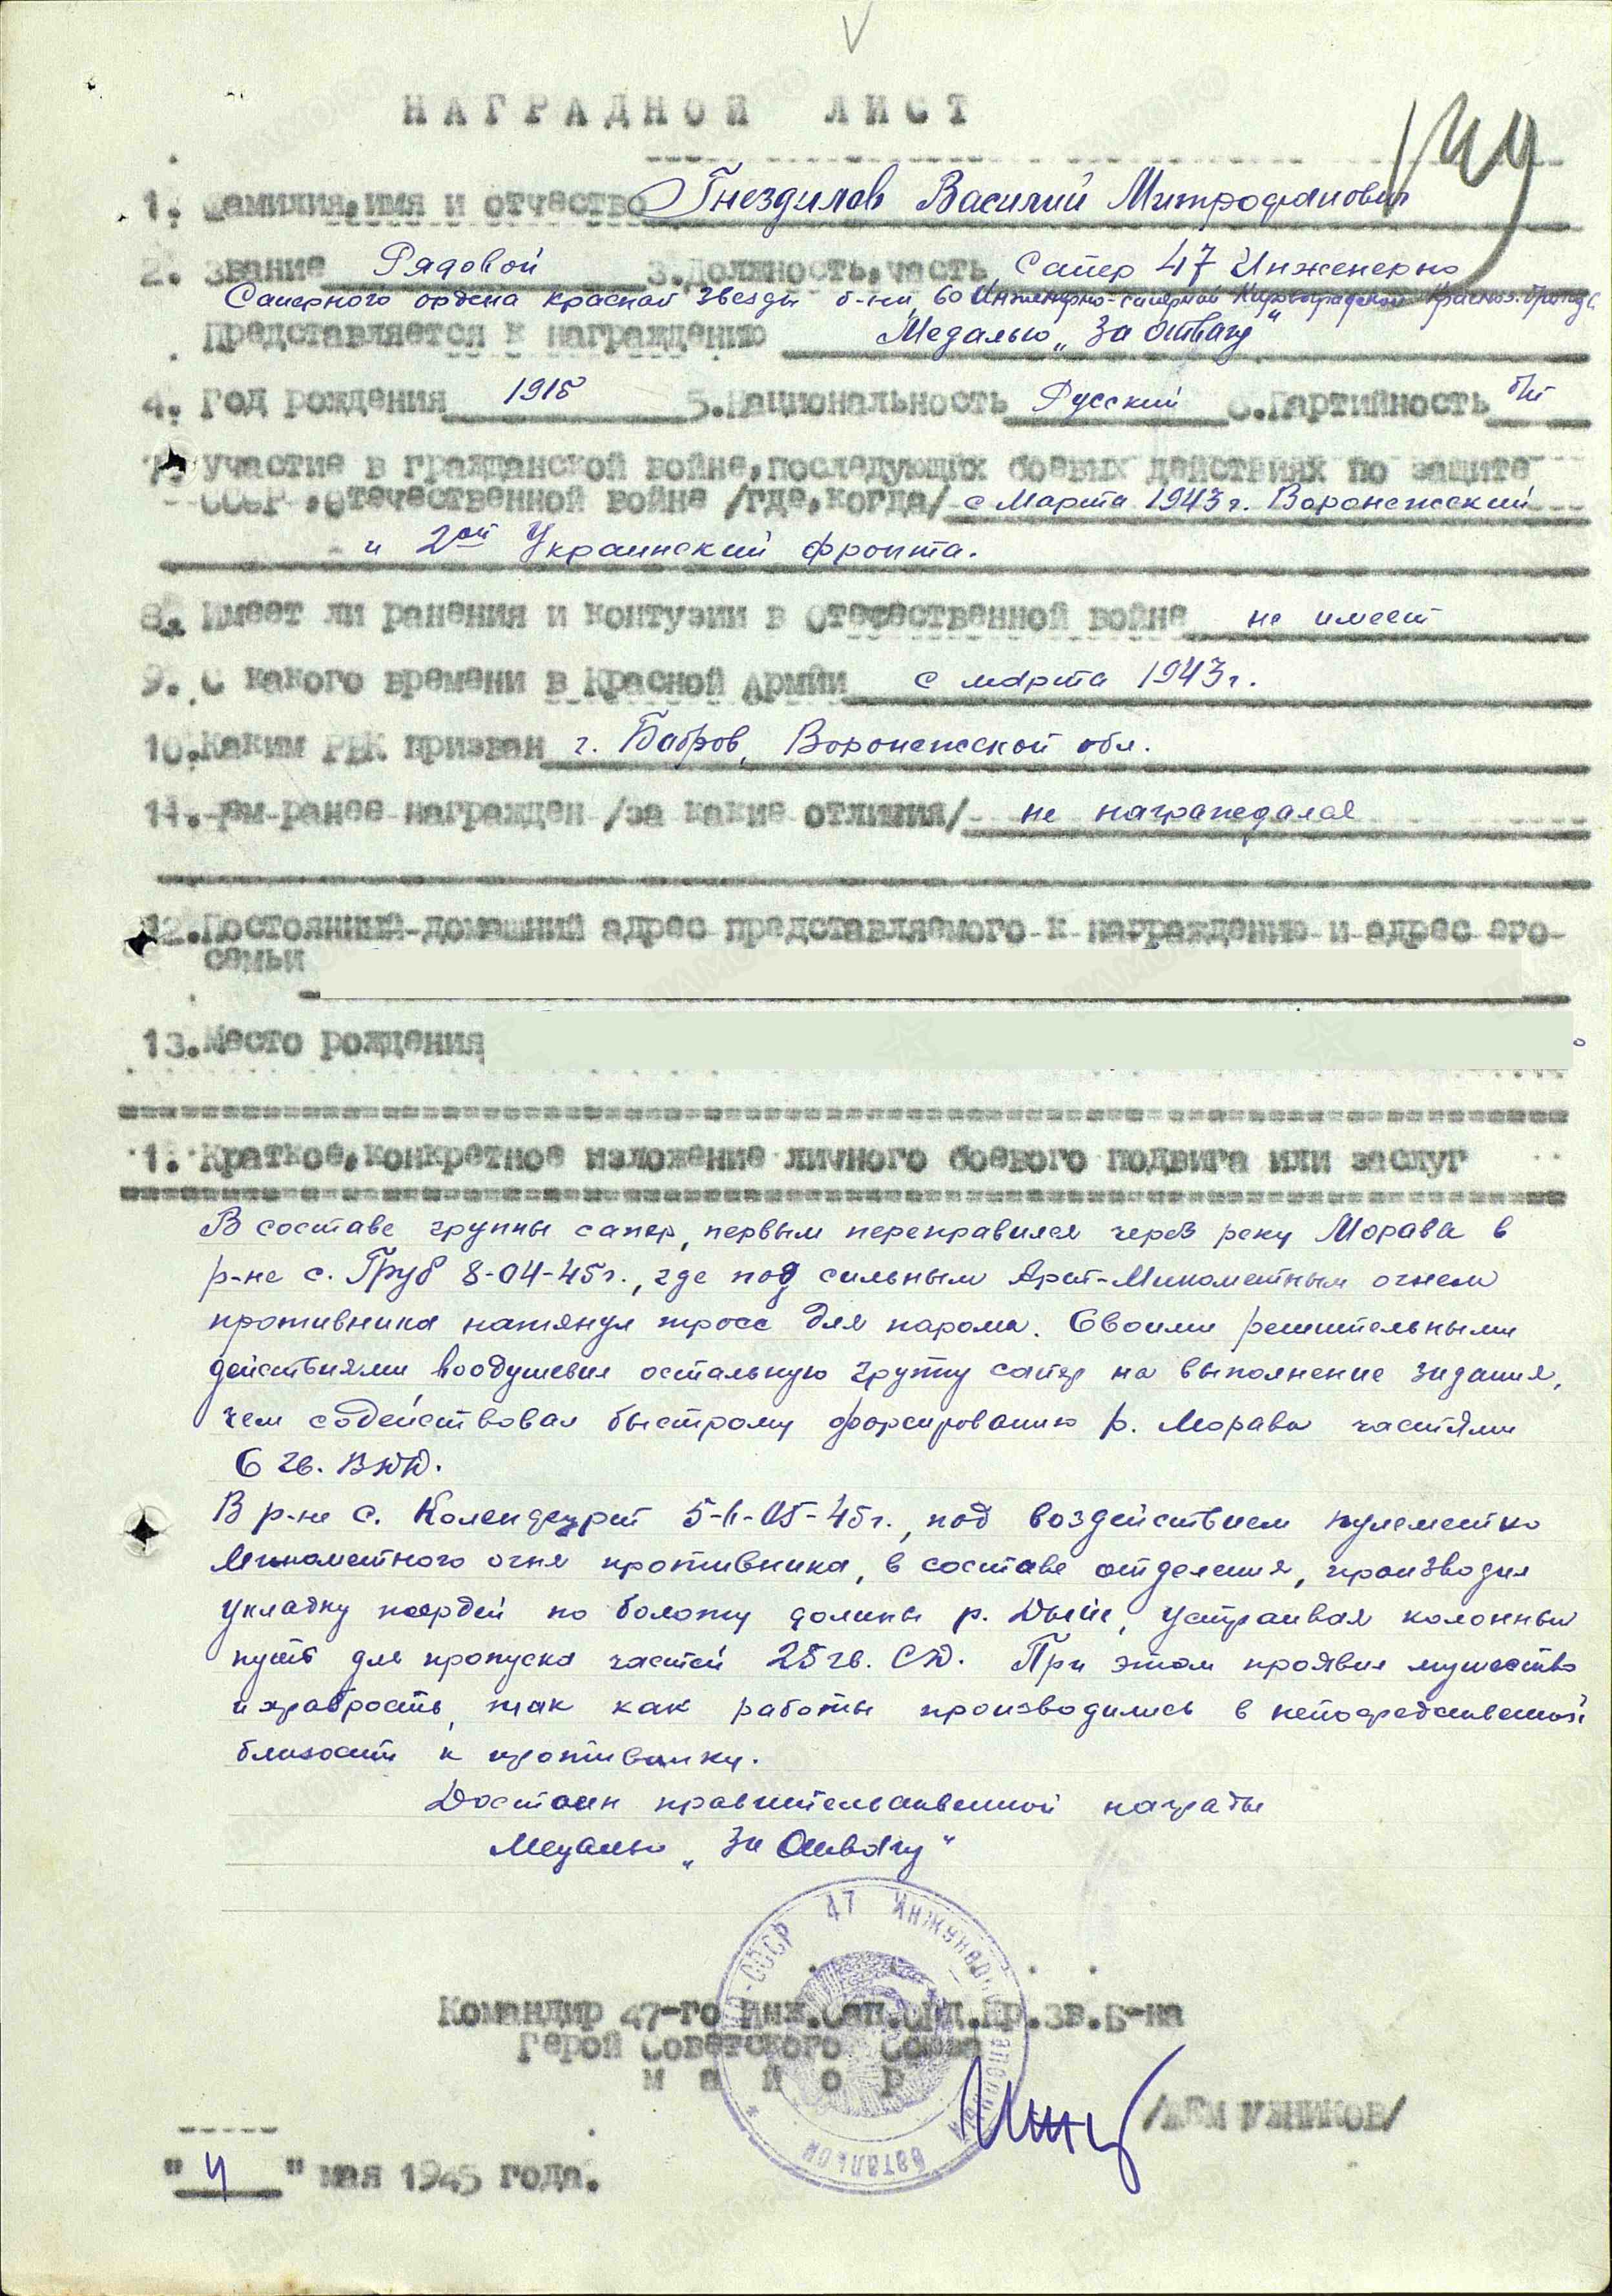 НАГРАДНОЙ ЛИСТ
1. Фамилия, имя и отчество Гнездилов Василий Митрофанович
2. Звание Рядовой 3. Должность, часть Сапер 47 Инженерно
Саперного ордена красной звезды б-на, 60 Инженерно-саперной Кировоградской Красноз.
Представляется к награждению Медалью „За отвагу"
4. Год рождения 5. Национальность Русский 6. Партийность б/п
7. Участие в гражданской войне, последующих боевых действиях по защите
СССР, Отечественной войне /где, когда/ с Марта 1943г. Воронежский
и 2ой Украинский фронта.
8. Имеет ли ранения и контузии в Отечественной войне не имеет
9. С какого времени в Красной Армии с марта 1943г.
10. Каким РВК призван г. Бобров, Воронежской обл.
11. Чем ранее награжден /за какие отличия/ не награждался
12. Постоянный домашний адрес представляемого к награждению и адрес его
семьи
13. Место рождения
1. Краткое, конкретное изложение личного боевого подвига или заслуг
В составе группы сапер, первым переправился через реку Морава в
р-не с. Груб 8-04-45г., где под сильным Арт-Минометным огнем
противника натянул тросс для парома. Своими решительными
действиями воодушевил остальную группу сапер на выполнение задания,
чем содействовал быстрому форсированию р. Морава частями
6 гв. ВДД.
В р-не с. 05-45г., под воздействием пулеметно
Минометного огня противника, в составе отделения, производил
укладку жердей по болоту долины р. Дыйе, устраивая колонный
путь для пропуска частей 25 гв. СД. При этом проявил мужество
и храбрость, так как работы производились в непосредственной
близости к противнику.
Достоин правительственной награды
Медалью „За Отвагу"
47 Инженерно
СССР
батальон
Командир 47-го Инж.Сап.Орд.Кр.Зв.Б-на
Герой Советского Союза
майор
"4" мая 1945 года.